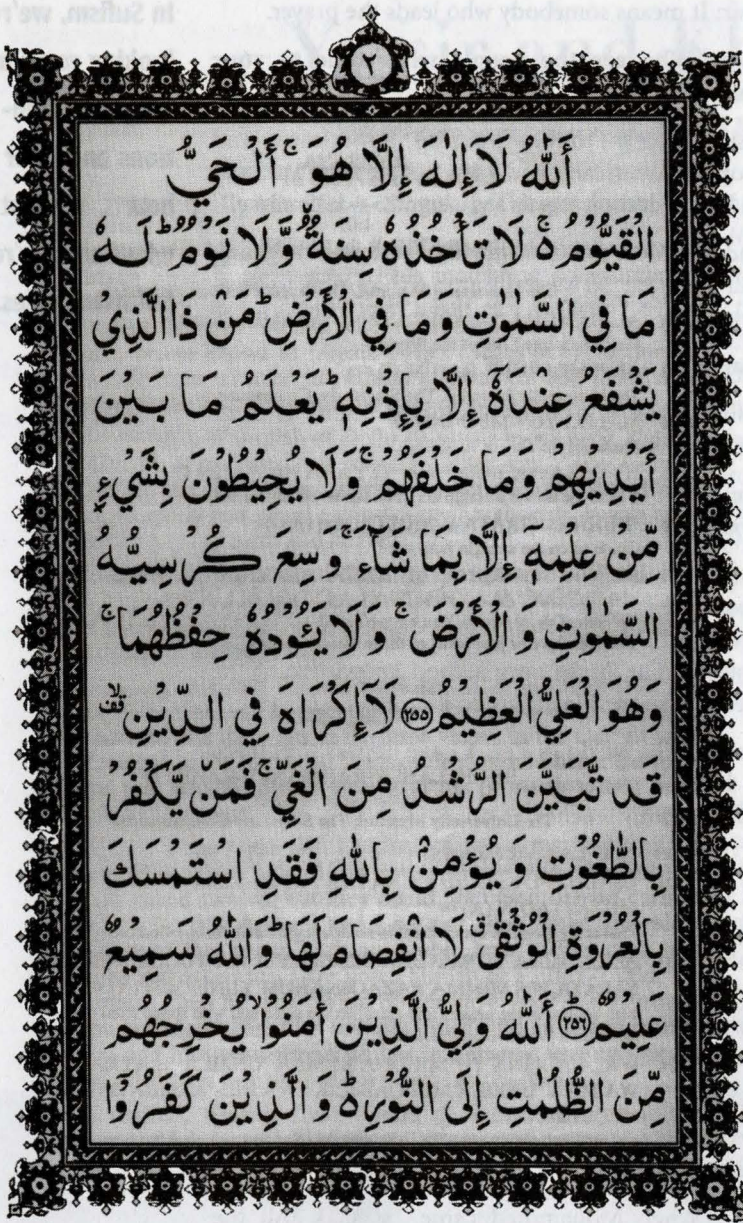 un It means somebody who leads the prayer.
In Sufism, we'r
٢
أَللّٰهُ لَآ إِلٰهَ إِلَّا هُوَ ۚ أَلْحَيُّ
الْقَيُّوْمُ ۚ لَا تَأْخُذُهٗ سِنَةٌ وَّلَا نَوْمٌ ؕ لَهٗ
مَا فِي السَّمٰوٰتِ وَ مَا فِي الْأَرْضِ ؕ مَنْ ذَا الَّذِيْ
يَشْفَعُ عِنْدَهٗٓ إِلَّا بِإِذْنِهٖ ؕ يَعْلَمُ مَا بَيْنَ
أَيْدِيْهِمْ وَ مَا خَلْفَهُمْ ۚ وَلَا يُحِيْطُوْنَ بِشَيْءٍ
مِّنْ عِلْمِهٖ إِلَّا بِمَا شَآءَ ۚ وسع كُرْسِيُّهُ
السَّمٰوٰتِ وَ الْأَرْضَ ۚ وَ لَا يَئُوْدُهٗ حِفْظُهُمَا ۚ
وَهُوَ الْعَلِيُّ الْعَظِيْمُ ﴿٢٥٥﴾ لَآ إِكْرَاهَ فِي الدِّيْنِ ۙقف
قَد تَّبَيَّنَ الرُّشْدُ مِنَ الْغَيِّ ۚ فَمَنْ يَّكْفُرْ
بِالطّٰغُوْتِ وَ يُؤْمِنْ بِاللّٰهِ فَقَدِ اسْتَمْسَكَ
بِالْعُرْوَةِ الْوُثْقٰى ق لَا انْفِصَامَ لَهَا ؕ وَاللّٰهُ سَمِيْعٌ
عَلِيْمٌ ﴿٢٥٦﴾ أَللّٰهُ وَلِيُّ الَّذِيْنَ أٰمَنُوْا ۙ يُخْرِجُهُم
مِّنَ الظُّلُمٰتِ إِلَى النُّوْرِ ؕ وَ الَّذِيْن كَفَرُوْا